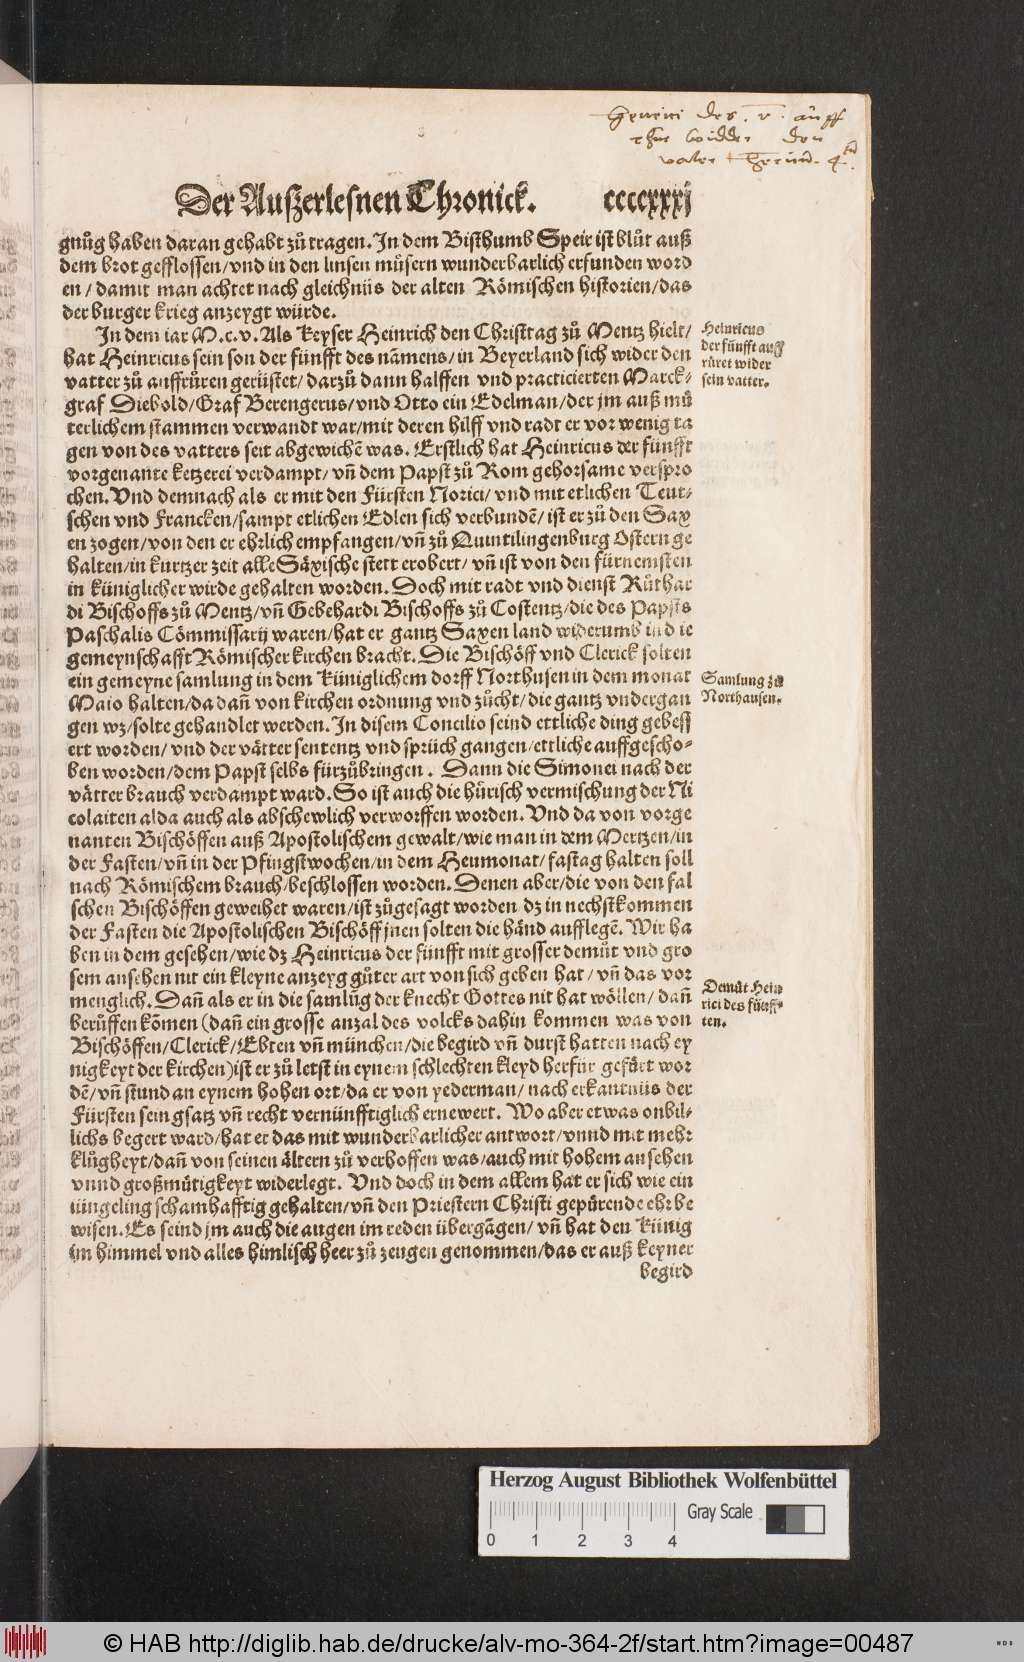 Henrici des . v . auff
rhur widder den
vater
Der Auszerlesnen Chronick. ccccxxxj
gnůg haben daran gehabt zů tragen. In dem Bisthumb Speir ist blůt auß
dem brot gefflossen/vnd in den linsen můsern wunderbarlich erfunden word
en/ damit man achtet nach gleichnüs der alten Römischen historien/das
der burger krieg anzeygt würde.
In dem iar M.c.v. Als keyser Heinrich den Christtag zů Mentz hielt/
hat Heinricus sein son der fünfft des nãmens/in Beyerland sich wider den
vatter zů auffrůren gerüstet/darzů dann halffen vnd practicierten Marck-
graf Diebold/Graf Berengerus/vnd Otto ein Edelman/der jm auß mů
terlichem stammen verwandt war/mit deren hilff vnd radt er vor wenig ta
gen von des vatters seit abgewichẽ was. Erstlich hat Heinricus der fünfft
vorgenante ketzerei verdampt/vñ dem Papst zů Rom gehorsame verspro
chen. Vnd demnach als er mit den Fürsten Norici/vnd mit etlichen Teut-
schen vnd Francken/sampt etlichen Edlen sich verbundẽ/ist er zů den Sax
en zogen/von den er ehrlich empfangen/vñ zů Quintilingenburg Ostern ge
halten/in kurtzer zeit alle Säxische stett erobert/vñ ist von den fürnemsten
in küniglicher wirde gehalten worden. Doch mit radt vnd dienst Růthar
di Bischoffs zů Mentz/vñ Gebehardi Bischoffs zů Costentz/die des Papsts
Paschalis Cõmmissarij waren/hat er gantz Saxen land widerumb in d ie
gemeynschafft Römischer kirchen bracht. Die Bischöff vnd Clerick solten
ein gemeyne samlung in dem küniglichem dorff Northusen in dem monat
Maio halten/da dañ von kirchen ordnung vnd zůcht/die gantz vndergan
gen wz/solte gehandlet werden. In disem Concilio seind ettliche ding gebess
ert worden/vnd der vätter sententz vnd sprüch gangen/ettliche auffgescho-
ben worden/dem Papst selbs fürzůbringen. Dann die Simonei nach der
vätter brauch verdampt ward. So ist auch die hůrisch vermischung der Ni
colaiten alda auch als abschewlich verworffen worden. Vnd da von vorge
nanten Bischöffen auß Apostolischem gewalt/wie man in dem Mertzen/in
der Fasten/vñ in der Pfingstwochen/in dem Heumonat/fastag halten soll
nach Römischem brauch/beschlossen worden. Denen aber/die von den fal
schen Bischöffen geweihet waren/ist zůgesagt worden dz in nechstkommen
der Fasten die Apostolischen Bischöff jnen solten die händ aufflegẽ. Wir ha
ben in dem gesehen/wie dz Heinricus der fünfft mit grosser demůt vnd gro
sem ansehen nit ein kleyne anzeyg gůter art von sich geben hat/vñ das vor
menglich. Dañ als er in die samlũg der knecht Gottes nit hat wöllen/dañ
berůffen kõmen (dañ ein grosse anzal des volcks dahin kommen was von
Bischöffen/Clerick/Ebten vñ münchen/die begird vñ durst hatten nach ey
nigkeyt der kirchen) ist er zů letst in eynem schlechten kleyd herfür gefůrt wor
dẽ/vñ stund an eynem hohen ort/da er von yederman/nach erkantnüs der
Fürsten sein gsatz vñ recht vernünfftiglich ernewert. Wo aber etwas onbil-
lichs begert ward/hat er das mit wunderbarlicher antwort/vnnd mit mehr
klůgheyt/dañ von seinen ältern zů verhoffen was/auch mit hohem ansehen
vnnd großmütigkeyt widerlegt. Vnd doch in dem allem hat er sich wie ein
jüngeling schamhafftig gehalten/vñ den Priestern Christi gepürende ehr be
wisen. Es seind jm auch die augen im reden übergãgen/vñ hat den künig
im himmel vnd alles himlisch heer zů zeugen genommen/das er auß keyner
begird
Heinricus
der fünfft auff
růret wider
sein vatter.
Samlung zů
Northausen.
Demůt Hein
rici des fünff-
ten.
Herzog August Bibliothek Wolfenbüttel
Gray Scale
0 1 2 3 4
© HAB http://diglib.hab.de/drucke/alv-mo-364-2f/start.htm?image=00487